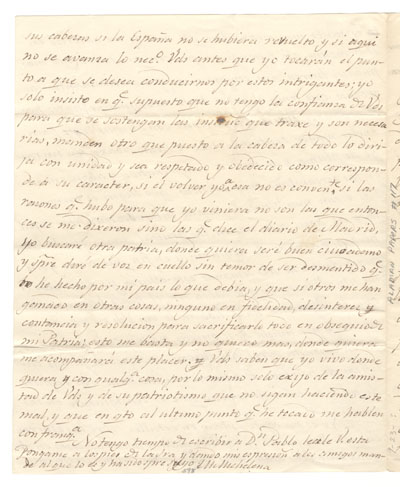 sus cabezas si la España no se hubiera revuelto y si aqui
no se avanza lo neco. Vds antes que yo tocarán el pun-
to a que se desea conducirnos por estos intrigantes; yo
solo insisto en q. supuesto que no tengo la confianza de Vds
para que se sostengan las instruc que traxe y son necesa
rias, manden otro que puesto a la cabeza de todo lo diri-
ja con unidad y sea respetado y obedecido como correspon-
de a su caracter, si el volver yo a esa no es convente. si las
razones q. hubo para que yo viniera no son las que enton-
ces se me dixeron sino las q. dice el diario de Madrid,
yo buscaré otra patria, donde quiera seré buen ciudadano
y spre daré de voz en cuello sin temor de ser desmentido q.
he hecho por mi pais lo que debia, y que si otros me han
ganado en otras cosas, ninguno en fidelidad, desinteres y
constancia y resolucion para sacrificarlo todo en obsequio de
mi Patria: esto me basta y no quiero mas, donde quiera
me acompañará este placer. y Vds saben que yo vivo donde
quiera y con qualqa. cosa, por lo mismo solo exijo de la amis-
tad de Vds y de su patriotismo que no sigan haciendo este
mal, y que en qto al ultimo punto q. he tocado me hablen
con franqa.
No tengo tiempo de escribir a Dn. Pablo
Pongame a los pies de y demas mis espresion a los Amigos man-
de al que lo es y ha sido spre suyo Michelena